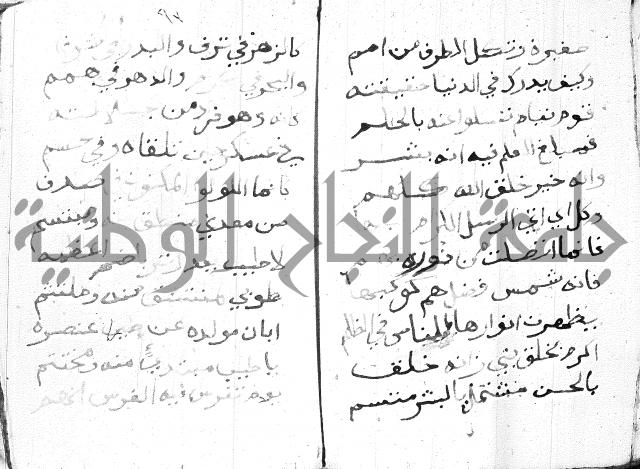 صغيرة وتكل الطرف من امم
وكيف يدرك في الدنيا حقيقته
قوم نيام تسلوا عنه بالحلم
فمبلغ العلم فيه انه بشر
وانه خير خلق الله كلهم
وكل اي اتي الرسل الكرام بها
فانما اتصلت من نوره بهم
فانه شمس فضل هم كواكبها
يظهرن انوارها للناس في الظلم
اكرم بخلق نبي زانه خلق
بالحسن مشتمل بالبشر متسم
٩٣
كالزهر في ترف والبدر في شرف
والبحر في كرم والدهر في همم
كانه وهو فرد من جلالته
في عسكر حين تلقاه وفي حشم
كانما اللولو المكنون في صدف
من معدني منطق منه ومبتسم
لا طيب يعدل تربا ضم اعظمه
طوبي لمنتشق منه وملتثم
ابان مولده عن طيب عنصره
يا طيب مبتدئ منه ومختتم
يوم تفرس فيه الفرس انهم
جامعة النجاح الوطنية